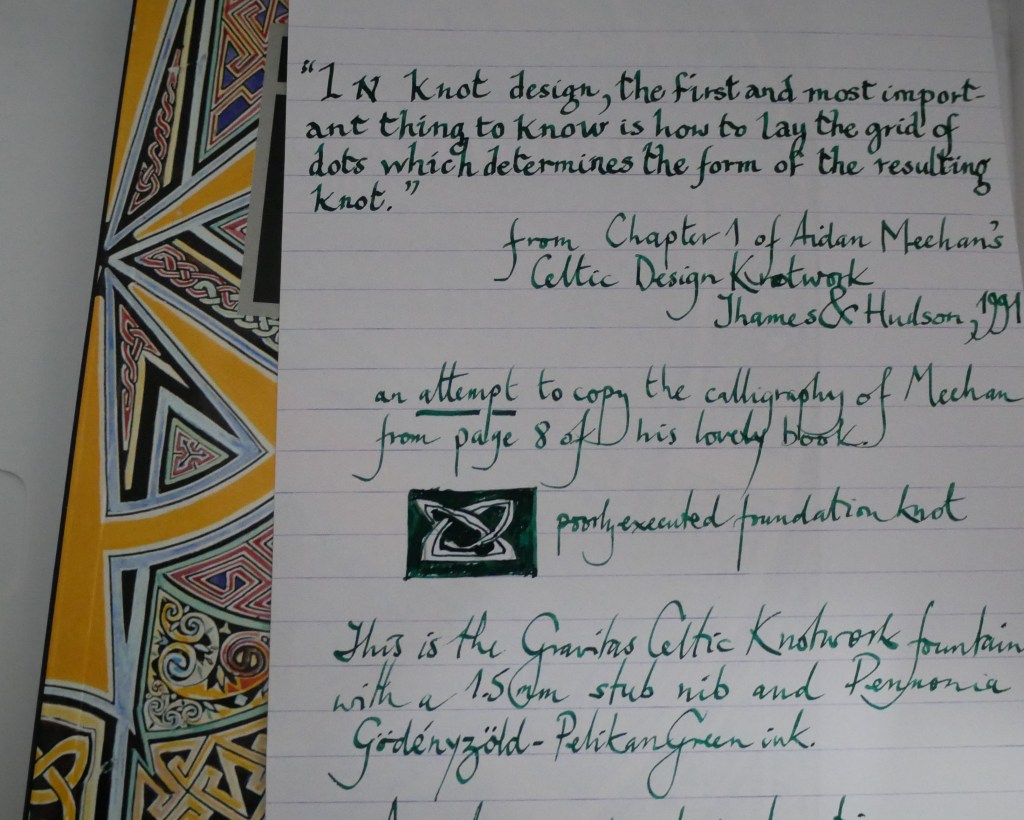 “IN knot design, the first and most import-
ant thing to know is how to lay the grid of
dots which determines the form of the resulting
knot.”
from Chapter 1 of Aidan Meehan's
Celtic Design Knotwork
Thames & Hudson, 1991
an attempt to copy the calligraphy of Meehan
from page 8 of his lovely book.
poorly executed foundation knot
This is the Gravitas Celtic Knotwork fountain
with a 1.5mm stub nib and Pennonia
Gödényzöld - Pelikan Green ink.